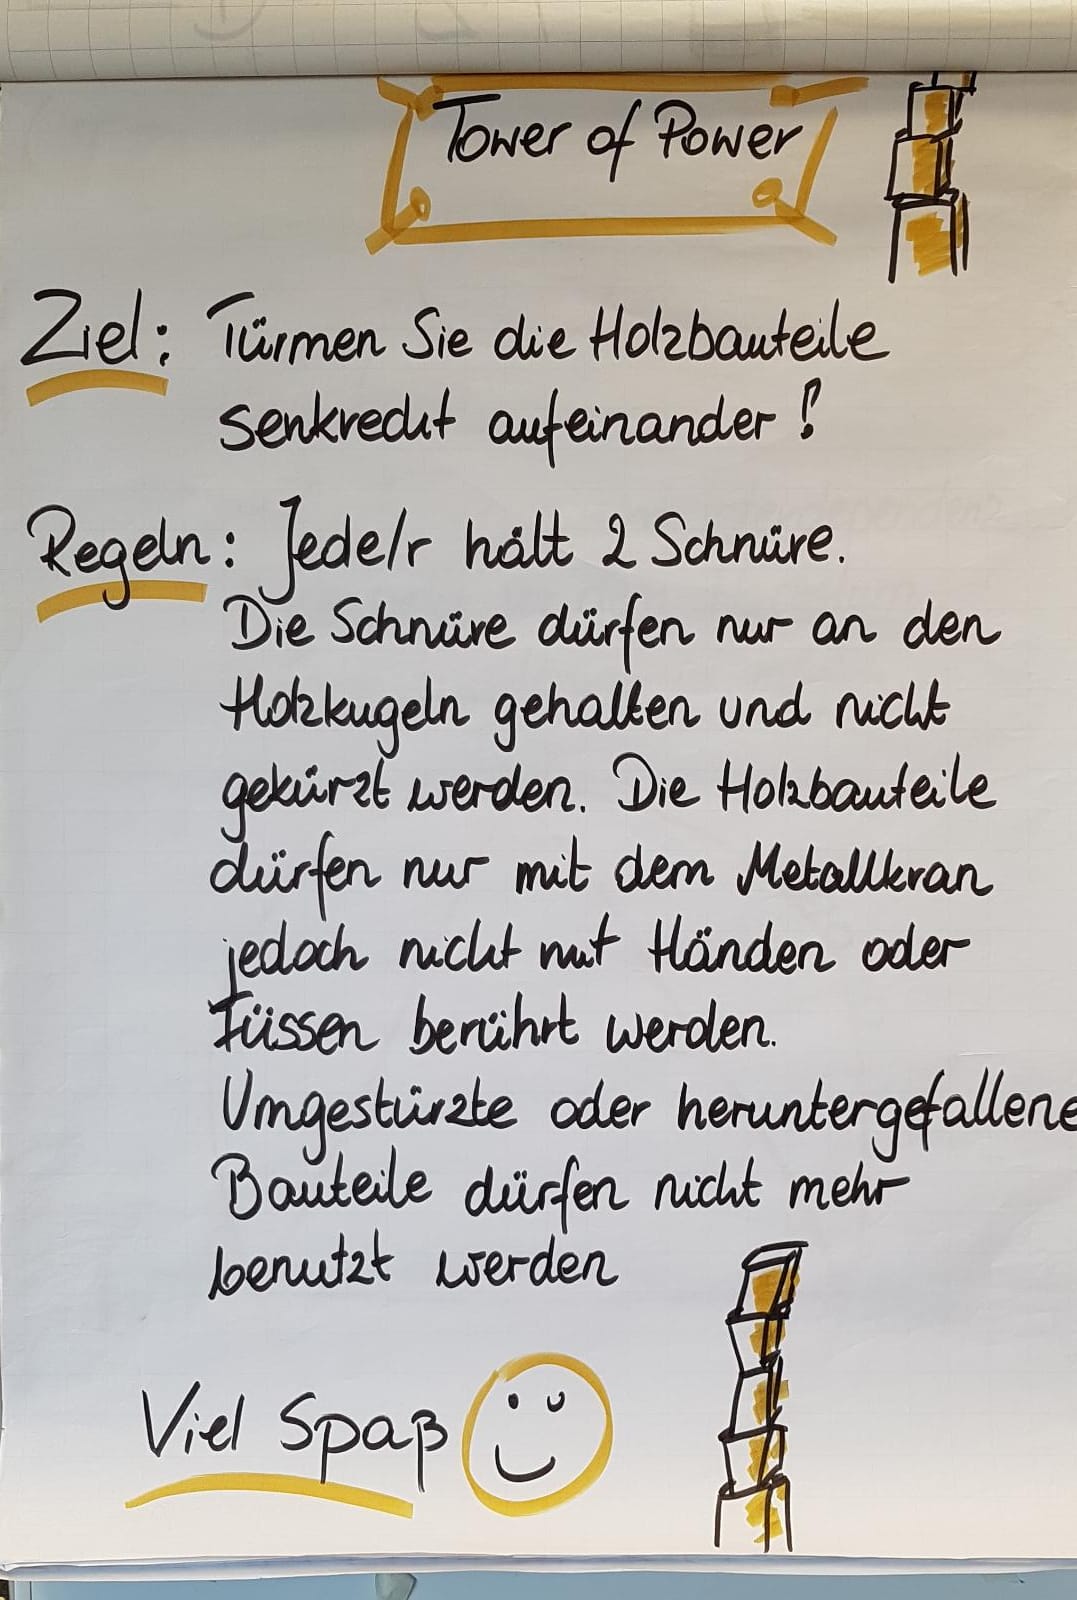 Tower of Power
Ziel: Türmen Sie die Holzbauteile
senkrecht aufeinander!
Regeln: Jede/r hält 2 Schnüre.
Die Schnüre dürfen nur an den
Holzkugeln gehalten und nicht
gekürzt werden. Die Holzbauteile
dürfen nur mit dem Metallkran
jedoch nicht mit Händen oder
Füssen berührt werden.
Umgestürzte oder heruntergefallene
Bauteile dürfen nicht mehr
benutzt werden
Viel Spaß